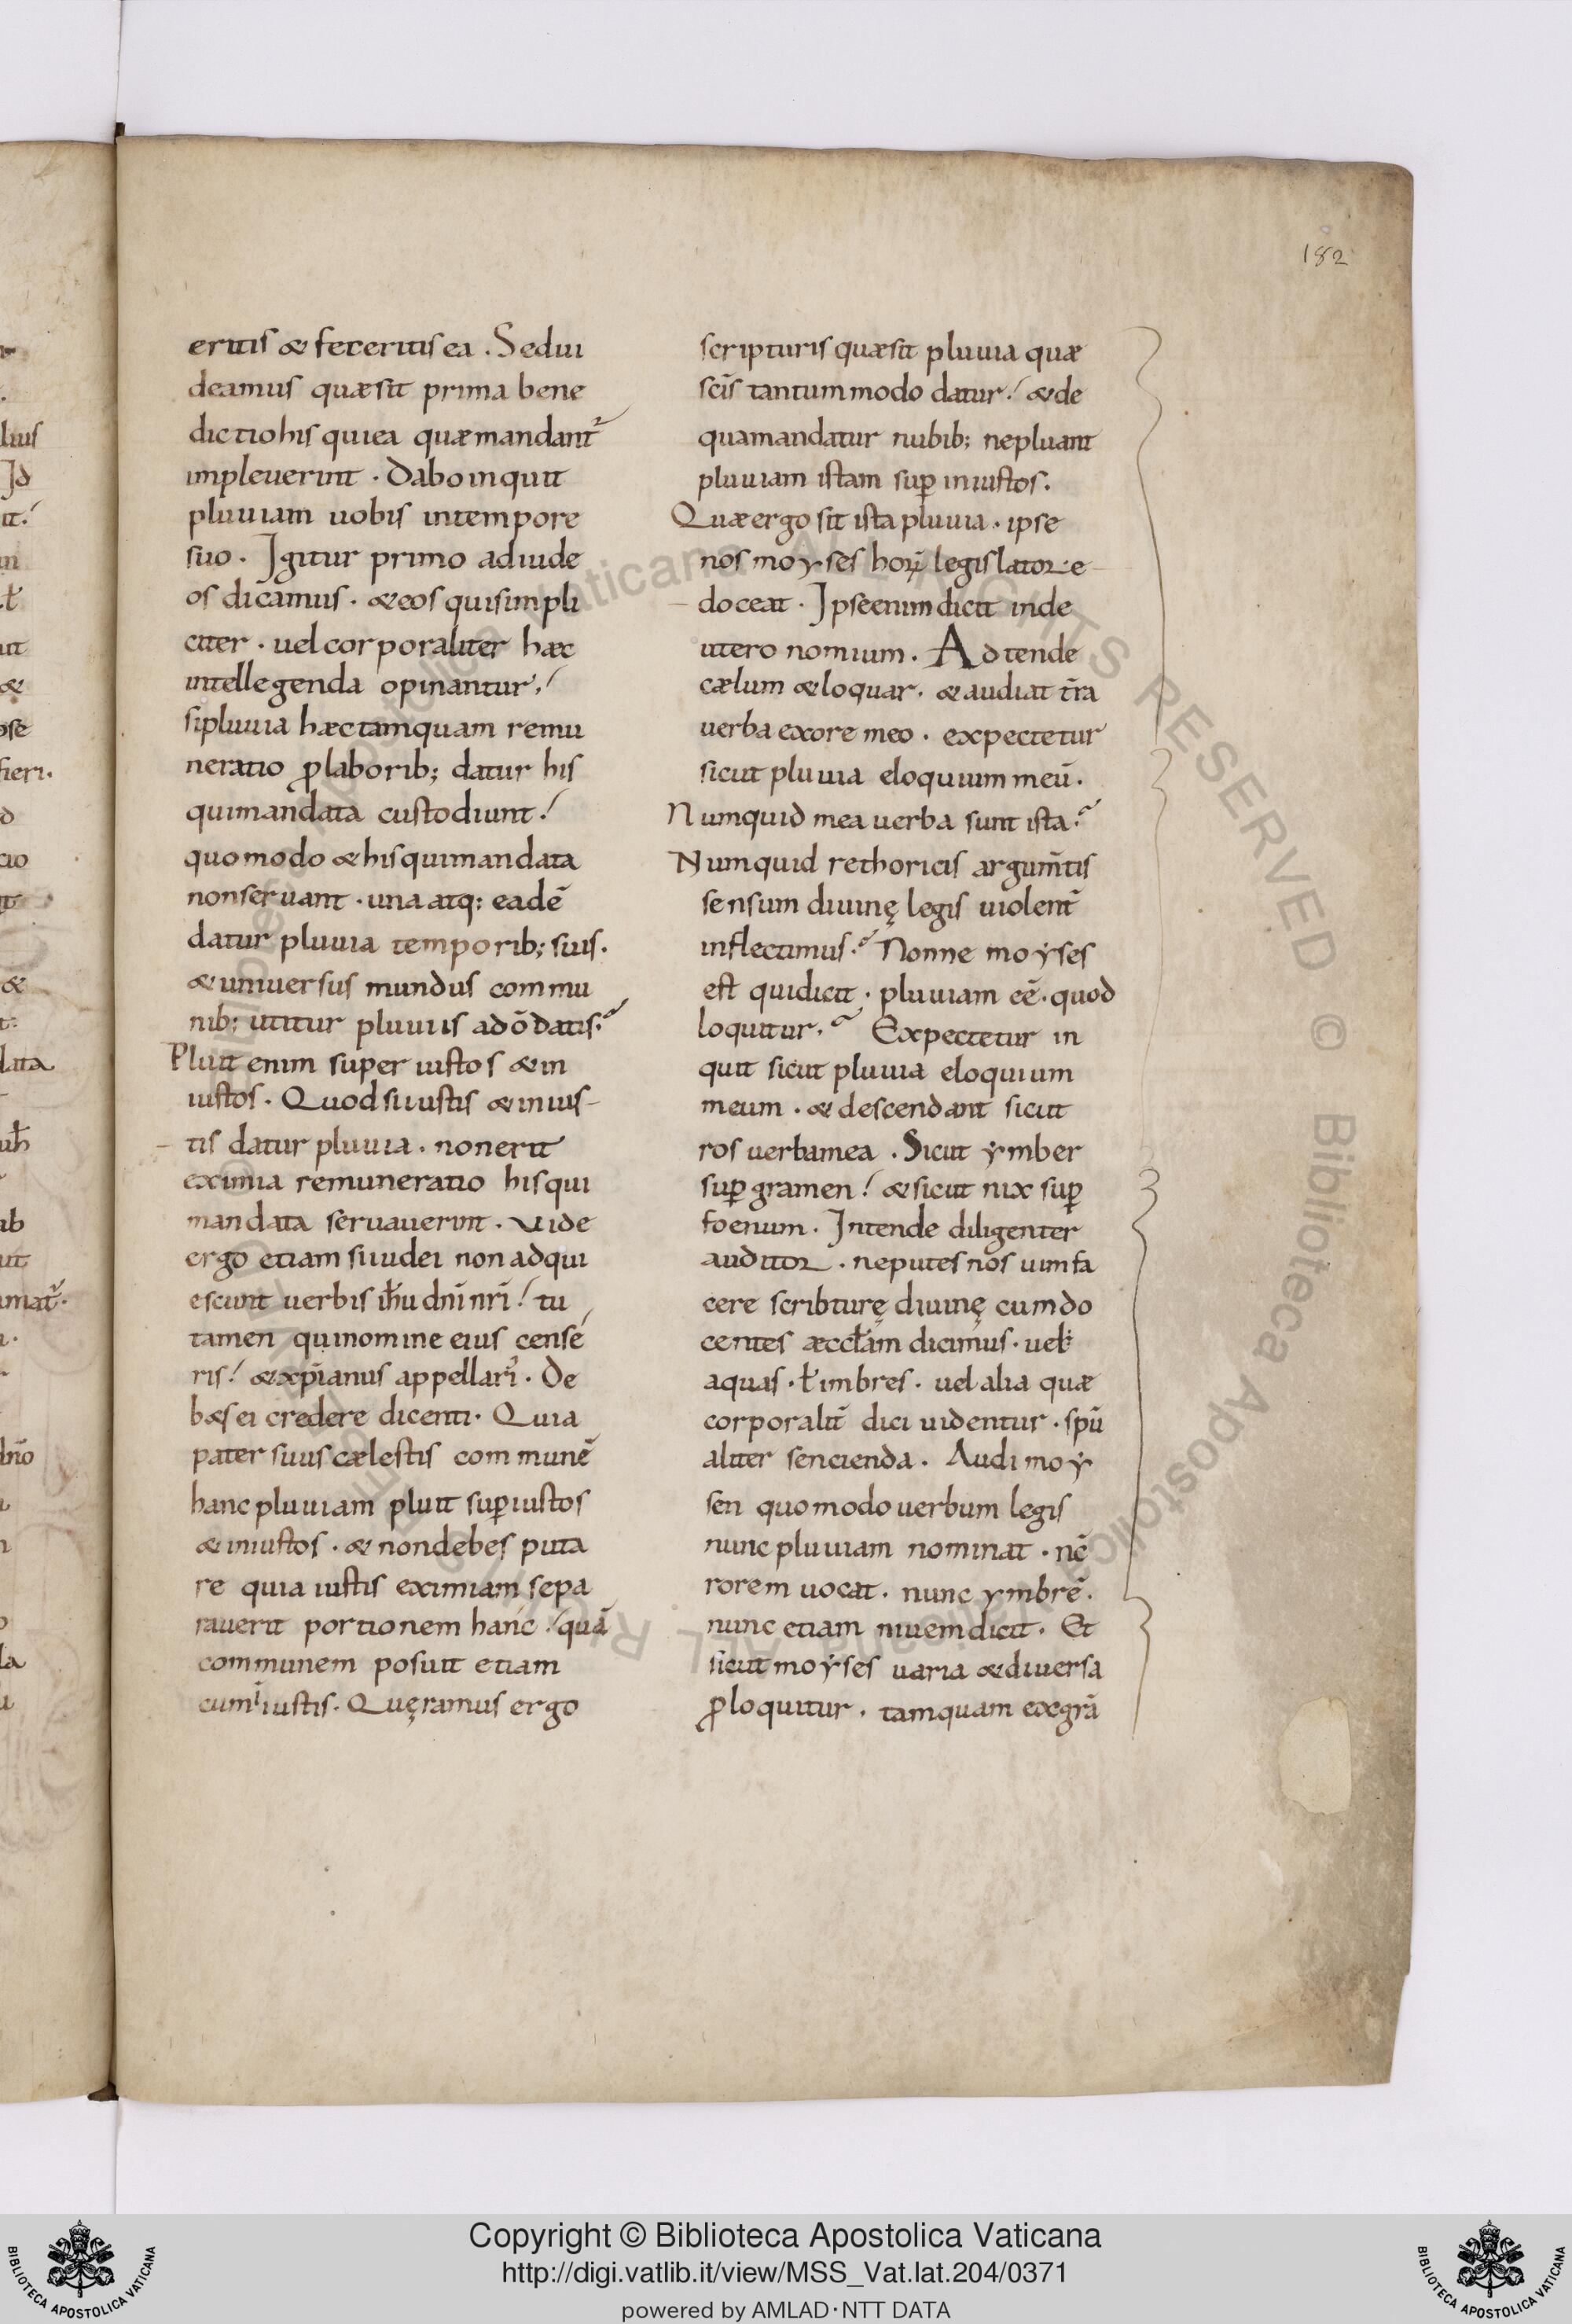 182
eritis & feceritis ea . Sed ui
deamus quæ sit prima bene
dictio his qui ea quæ mandant᷑
impleuerint . Dabo inquit
pluuiam uobis in tempore
suo . Igitur primo ad iude
os dicamus . & eos qui simpli
citer . uel corporaliter hæc
intellegenda opinantur,
si pluuia hæc tamquam remu
neratio ꝓ laborib; datur his
qui mandata custodiunt!
quomodo & his qui mandata
non seruant . una atq: eadē
datur pluuia temporib; suis.
& uniuersus mundus commu
nib; utitur pluuiis a dō datis.
Pluit enim super iustos & in
iustos . Quod si iustis & inius-
tis datur pluuia . non erit
eximia remuneratio his qui
mandata seruauerint . Vide
ergo etiam si iudei non adqui
escunt uerbis ihu dnī nrī! tu
tamen qui nomine eius cense
ris! & xpīanus appellari . De
bæs ei credere dicenti . Quia
pater suus cælestis communē
hanc pluuiam pluit suꝑ iustos
& iniustos . & non debes puta
re quia iustis eximiam sepa
rauerit portionem hanc! quā
communem posuit etiam
cum iniustis . Quęramus ergo
scripturis quæ sit pluuia quæ
scīs tantummodo datur! & de
qua mandatur nubib; ne pluant
pluuiam istam suꝑ iniustos.
Quæ ergo sit ista pluuia . ipse
nos moyses horꝝ legislatore
doceat . Ipse enim dicit in de
utero nomium . Adtende
cælum & loquar . & audiat t̄ra
uerba ex ore meo . expectetur
sicut pluuia eloquium meū.
Numquid mea uerba sunt ista.
Numquid rethoricis argum̄tis
sensum diuinę legis uiolent̄
inflectimus. Nonne moyses
est qui dicit . pluuiam eē . quod
loquitur. Expectetur in
quit sicut pluuia eloquium
meum . & descendant sicut
ros uerba mea . Sicut ymber
suꝑ gramen! & sicut nix suꝑ
foenum . Intende diligenter
auditor . ne putes nos uim fa
cere scribturę diuinę cum do
centes æccłam dicimus . uel
aquas . ł imbres . uel alia quæ
corporalit̄ dici uidentur . spū
aliter sencienda . Audi moy
sen quomodo uerbum legis
nunc pluuiam nominat . nc̄
rorem uocat . nunc ymbrē .
nunc etiam niuem dicit . Et
sicut moyses uaria & diuersa
ꝓloquitur . tamquam ex grā
Copyright © Biblioteca Apostolica Vaticana
http://digi.vatlib.it/view/MSS_Vat.lat.204/0371
powered by AMLAD·NTT DATA
BIBLIOTECA APOSTOLICA VATICANA
BIBLIOTECA APOSTOLICA VATICANA